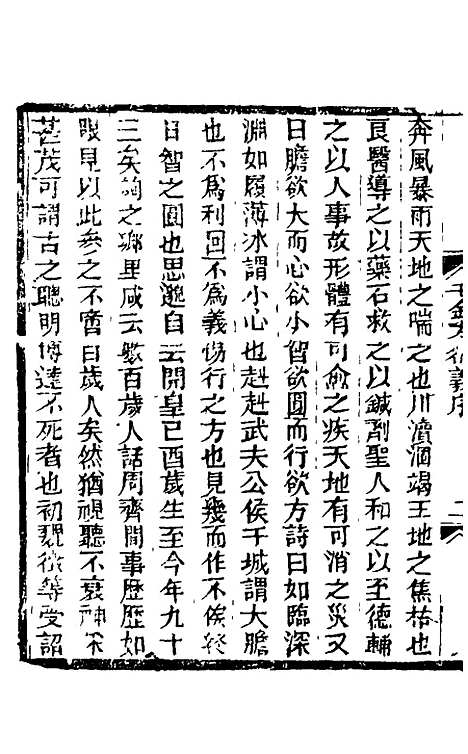 奔風暴雨天地之喘乏也川瀆涸竭王地之焦枯也
良醫導之以藥石救之以鍼劑聖人和之以至德輔
之以人事故形體有可愈之疾天地有可消之災又
曰膽欲大而心欲小智欲圓而行欲方詩曰如臨深
淵如履薄冰謂小心也赳赳武夫公侯干城謂大膽
也不爲利回不爲義疚行之方也見幾而作不俟終
日智之圓也思邈自云開皇己酉歲生至今年九十
三矣詢之鄉里咸云數百歲人話周齊間事歷歷如
眼見以此參之不啻百歲人矣然猶視聽不衰神采
甚茂可謂古之聰明博達不死者也初魏徵等受詔
千金方衍義序
二